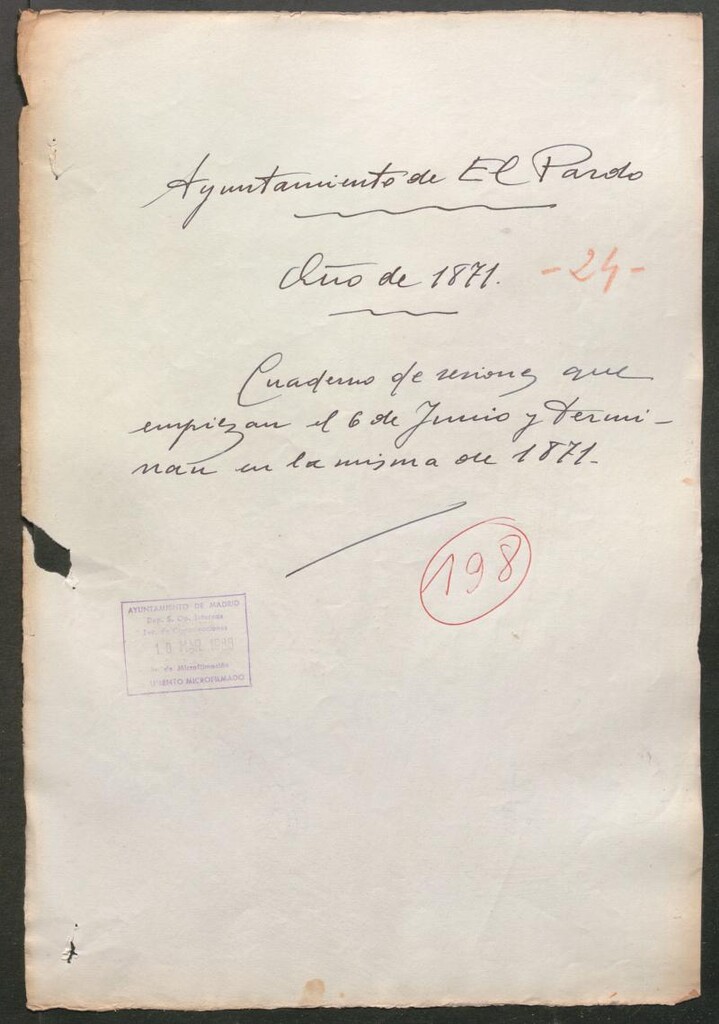 Ayuntamiento de El Pardo
Año de 1871.
- 24 -
Cuaderno de sesiones que
empiezan el 6 de Junio y termi-
nan en la misma de 1871-
198
AYUNTAMIENTO DE MADRID
Dep. S. Op. Internas
de Microfilmación
MICROFILMADO